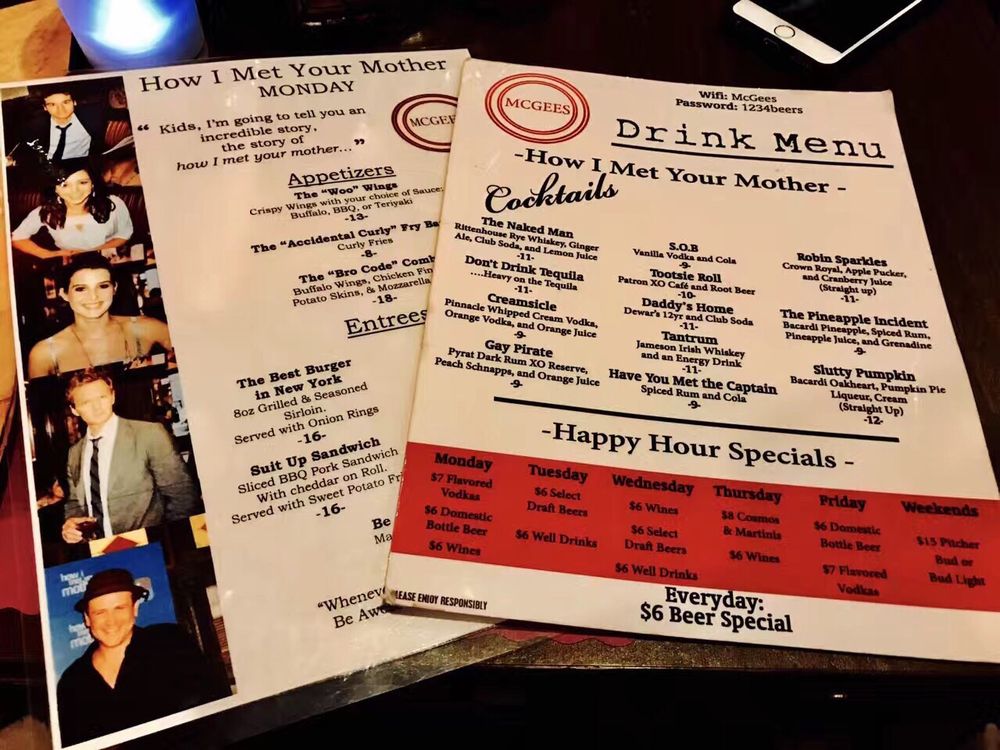 How I Met Your Mother
MONDAY
“ Kids, I'm going to tell you an
incredible story,
the story of
how I met your mother...”
MCGEE
Appetizers
The "Woo" Wings
Crispy Wings with your choice of Sauce:
Buffalo, BBQ, or Teriyaki
-13-
The "Accidental Curly" Fry Ba
Curly Fries
-8-
The "Bro Code" Comb
Buffalo Wings, Chicken Fin
Potato Skins, & Mozzarella
-18-
Entrees
The Best Burger
in New York
8oz Grilled & Seasoned
Sirloin.
Served with Onion Rings
-16-
Suit Up Sandwich
Sliced BBQ Pork Sandwich
With cheddar on Roll.
Served with Sweet Potato Fr
-16-
Be
Ma
“Whenev
Be Awe
MCGEES
Wifi: McGees
Password: 1234beers
Drink Menu
-How I Met Your Mother -
Cocktails
The Naked Man
Rittenhouse Rye Whiskey, Ginger
Ale, Club Soda, and Lemon Juice
-11-
Don't Drink Tequila
....Heavy on the Tequila
-11-
Creamsicle
Pinnacle Whipped Cream Vodka,
Orange Vodka, and Orange Juice
-9-
Gay Pirate
Pyrat Dark Rum XO Reserve,
Peach Schnapps, and Orange Juice
-9-
S.O.B
Vanilla Vodka and Cola
-9-
Tootsie Roll
Patron XO Café and Root Beer
-10-
Daddy's Home
Dewar's 12yr and Club Soda
-11-
Tantrum
Jameson Irish Whiskey
and an Energy Drink
-11-
Have You Met the Captain
Spiced Rum and Cola
-9-
Robin Sparkles
Crown Royal, Apple Pucker,
and Cranberry Juice
(Straight up)
-11-
The Pineapple Incident
Bacardi Pineapple, Spiced Rum,
Pineapple Juice, and Grenadine
-9-
Slutty Pumpkin
Bacardi Oakheart, Pumpkin Pie
Liqueur, Cream
(Straight Up)
-12-
-Happy Hour Specials -
Monday
$7 Flavored
Vodkas
$6 Domestic
Bottle Beer
$6 Wines
Tuesday
$6 Select
Draft Beers
$6 Well Drinks
Wednesday
$6 Wines
$6 Select
Draft Beers
$6 Well Drinks
Thursday
$8 Cosmos
& Martinis
$6 Wines
Friday
$6 Domestic
Bottle Beer
$7 Flavored
Vodkas
Weekends
$15 Pitcher
Bud or
Bud Light
Everyday:
$6 Beer Special
LEASE ENJOY RESPONSIBLY